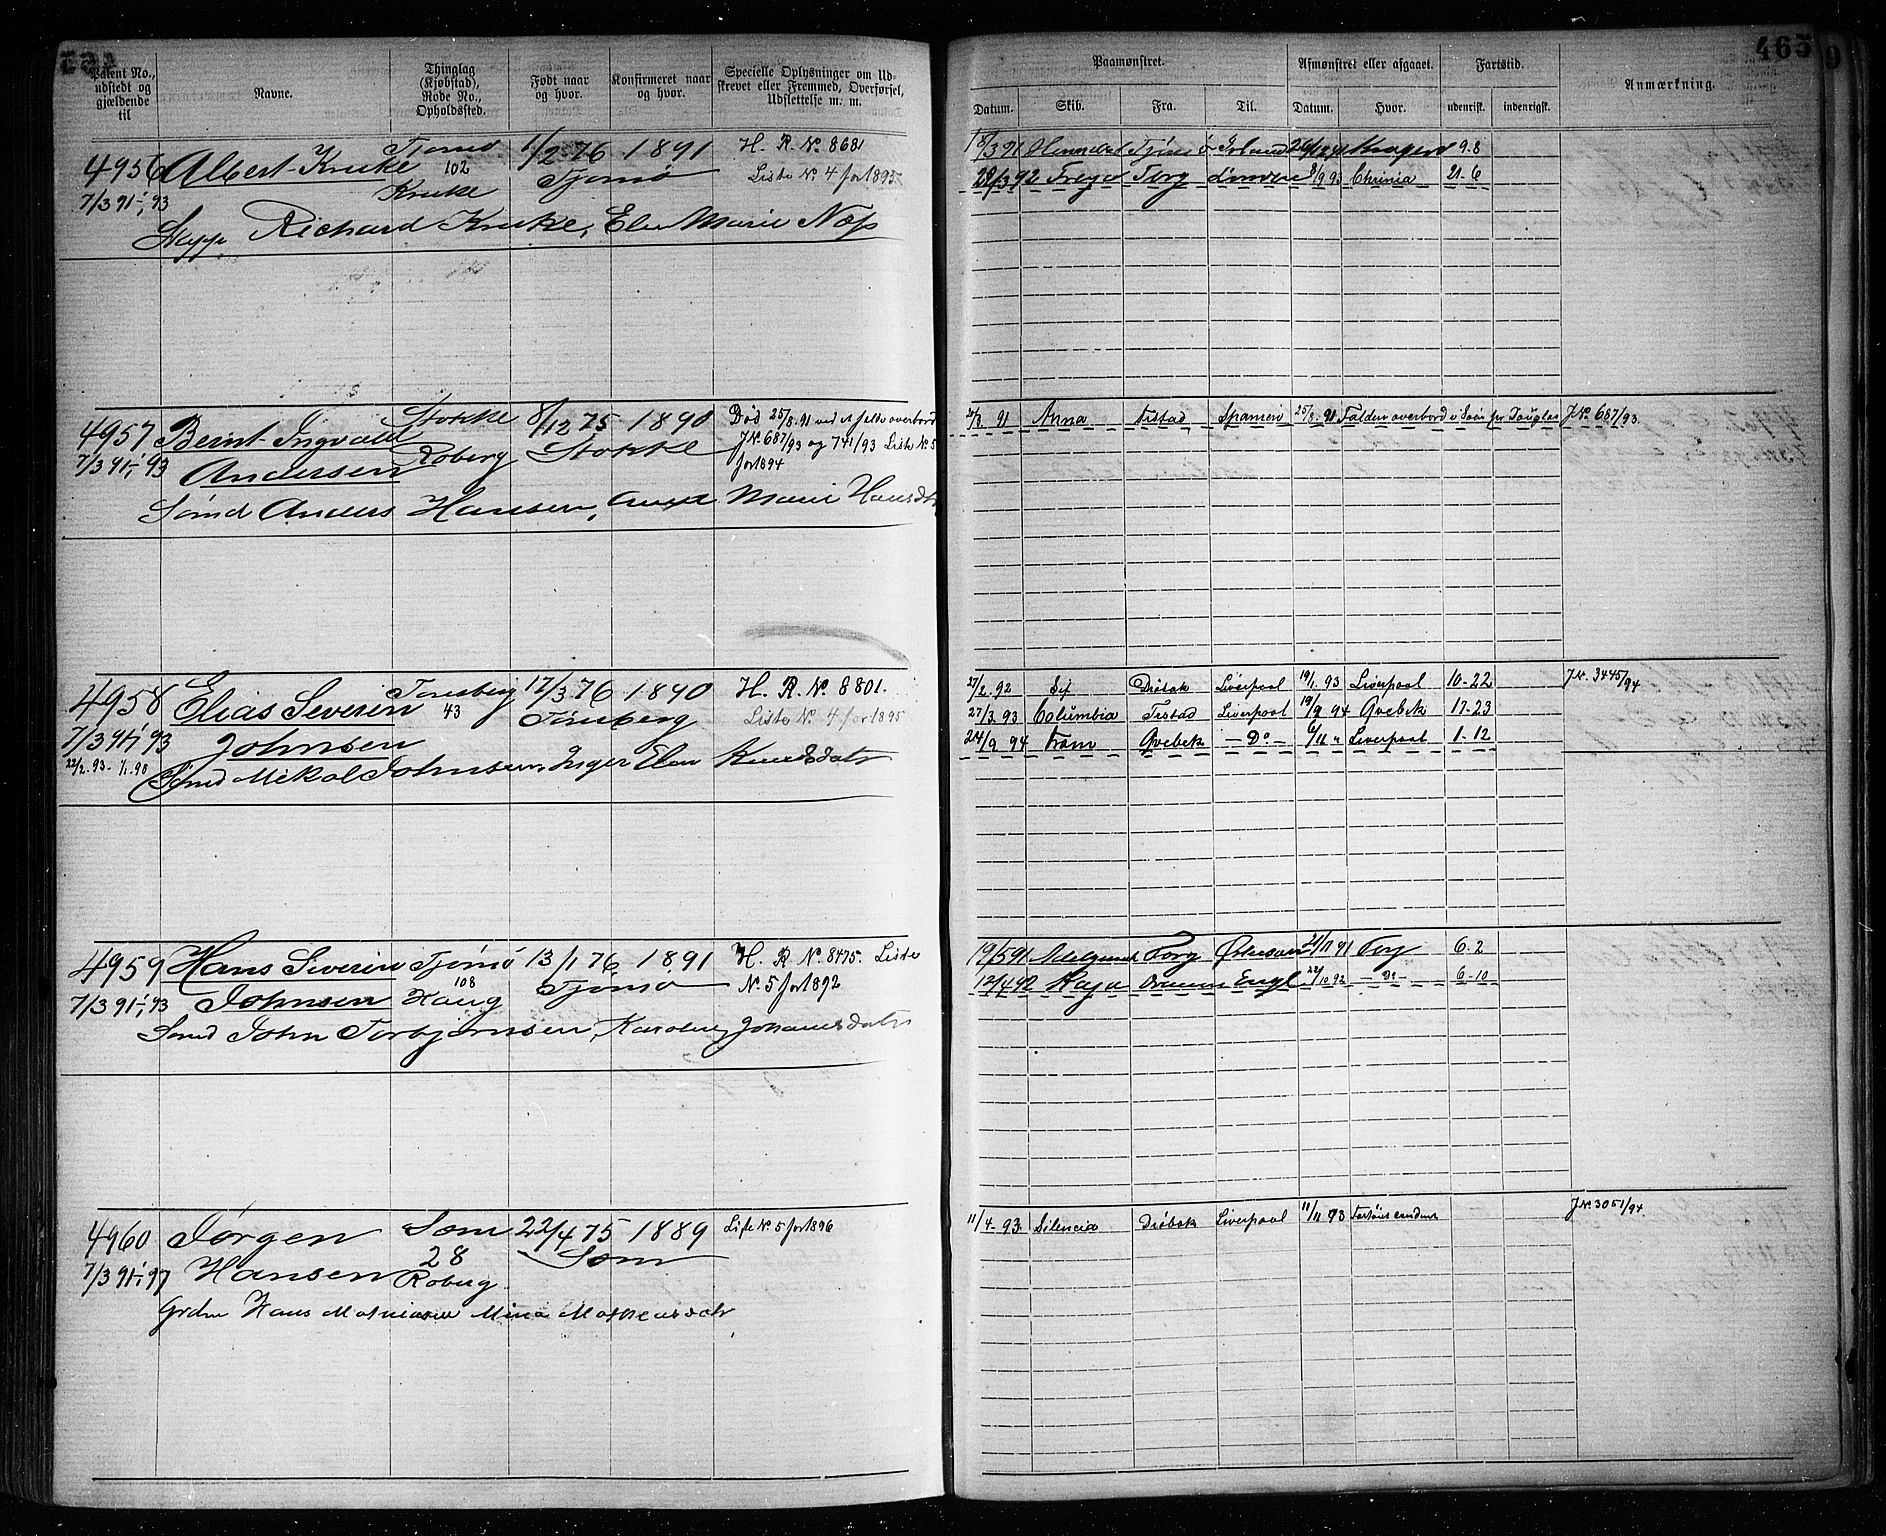 465
9
Patent No., udstedt og gjældende til
Navne.
Thinglag (Kjøbstad), Rode No., Opholdssted.
Født naar og hvor.
Konfirmeret naar og hvor.
Specielle Oplysninger om Udskrevet eller Fremmed, Overførsel, Udslettelse m. m.
Paamønstret.
Afmønstret eller afgaaet.
Fartstid.
Anmærkning.
Datum. Skib. Fra. Til. Datum. Hvor. udenrigsk. indenrigsk.
4956 Albert Kruke Tjømø 1/2 76 1891 H. R. No. 8681
7/3 91-1/1 93 102 Kruke Tjømø Liste No. 4 for 1895
Richard Kruke, Elen Marie Næss
/3 91 Tjøme Irland 9.8
28/3 92 Freya Tbrg 8/9 93 Chrinia 21-6
4957 Bernt Ingvald Stokke 8/12 75 1890 Død 25/8-91 ved at falde overbord
7/3 91-1/1 93 Andersen Roberg Stokke J.No. 687/93 og 741/93 Liste No. 5 for 1894
Sønd Anders Hansen, Marie Hansdtr
91 Anna Fistad Spanien 25/8-91 Falden overbord J.No. 687/93.
4958 Elias Severin Tønsberg 17/3 76 1890 H. R. No. 8801.
7/3 91-1/1 93 Johnsen 43 Tønsberg Liste No. 4 for 1895
22/2-93-1/1-98
Mikal Johnsen, Inger Elen Knudsdatr
27/2 92 Sif Drøbak Liverpool 19/1 93 Liverpool 10-22 J.No. 3445/94
27/3 93 Columbia Fistad Liverpool 19/9 94 Qvebek 17-23
24/9 94 Fram Qvebek - Do - 6/11 " Liverpool 1-12
4959 Hans Severin Tjømø 13/1 76 1891 H. R. No. 8475. Liste
7/3 91-1/1 93 Johnsen 108 Haug Tjømø No. 5 for 1892
Sønd John Torbjørnsen, Karoline Johannesdatr
19/5 91 Adelgunde Tbrg 21/11 91 Tbrg 6-2
12/4 92 Haya Engl 22/10 92 - Do - 6-10
4960 Jørgen Sem 22/4 75 1889 Liste No. 5 for 1896
7/3 91-1/1 97 Hansen 28 Roberg Sem
Grdm Hans Mathiasen Mina Matheasdatr
11/4-93 Silencia Drøbak Liverpool 11/11 93 J.No. 3051/94.